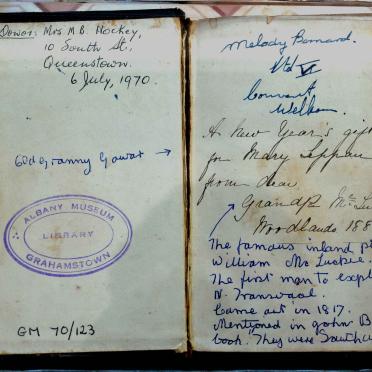 Donor: Mrs M.B. Hockey,
10 South St,
Queenstown.
6 July, 1970.
Granny Gowar →
ALBANY MUSEUM
LIBRARY
GRAHAMSTOWN
GM 70/123
Melody Bernard.
Std VI
Convent
A New Year's gift
for Mary
from dear
Grandpa
Woodlands 188
The famous inland
William Mc Luckie.
The first man to
N. Transvaal.
Came out in 1817.
Mentioned in John B
book "They were South